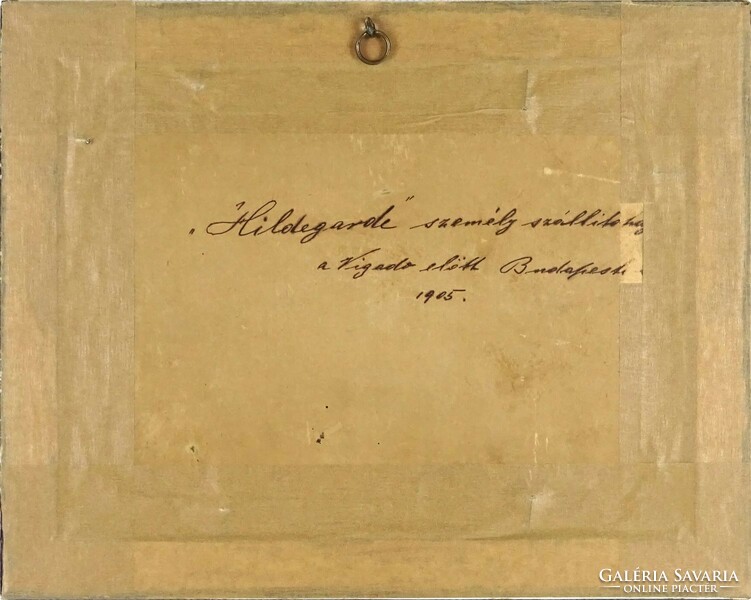 „Hildegarde” személy szállító
a Vigadó előtt Budapest
1905.
GALÉRIA SAVARIA
ONLINE PIACTÉR